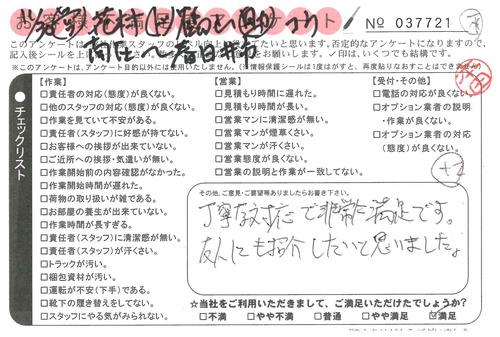 No 037721
このアンケートは
記入後シールを上
たいと思います。否定的なアンケートになりますので、
✓印は、いくつでも結構です。
※このアンケートは、アンケート目的以外には使用いたしません。(※情報保護シールは1度はがすと、再度貼りなおすことはできません)
チェックリスト
【作業】
□責任者の対応(態度)が良くない。
□他のスタッフの対応(態度)が良くない。
□作業を見ていて不安がある。
□責任者(スタッフ)に好感が持てない。
□お客様への挨拶が出来ていない。
□ご近所への挨拶・気遣いが無い。
□作業開始前の内容確認がなかった。
□作業開始時間が遅れた。
□荷物の取り扱いが雑である。
□お部屋の養生が出来ていない。
□作業時間が長すぎる。
□責任者(スタッフ)に清潔感が無い。
□責任者(スタッフ)が汗くさい。
□トラックが汚い。
□梱包資材が汚い。
□運転が不安(下手)である。
□靴下の履き替えをしてない。
□スタッフにやる気がみられない。
【営業】
□見積もり時間に遅れた。
□見積もり時間が長い。
□営業マンに清潔感が無い。
□営業マンが煙草くさい。
□営業マンが汗くさい。
□営業態度が良くない。
□営業の説明と作業が一致してない。
【受付・その他】
□電話の対応が良くない。
□オプション業者の説明
・作業が良くない。
□オプション業者の対応
(態度)が良くない。
+2
その他、ご意見・ご要望等ありましたらお書き下さい。
丁寧な対応で非常に満足です。
友人にも紹介したいと思いました。
☆当社をご利用いただきまして、ご満足いただけたでしょうか?
□不満 □やや不満 □普通 □やや満足 ☑満足